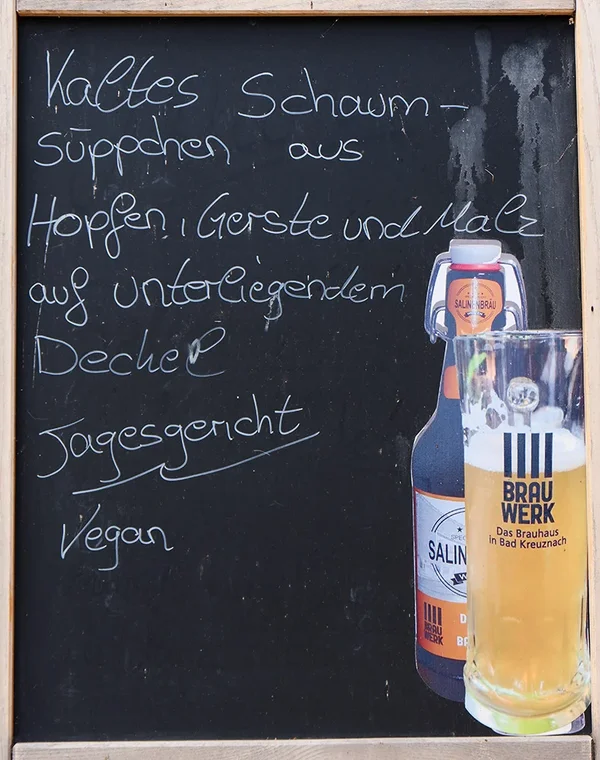 Kaltes Schaum-
süppchen aus
Hopfen, Gerste und Malz
auf unterliegendem
Deckel
Tagesgericht
Vegan
SALINENBRÄU
SALIN
BRAU
WERK
BRAU
WERK
Das Brauhaus
in Bad Kreuznach